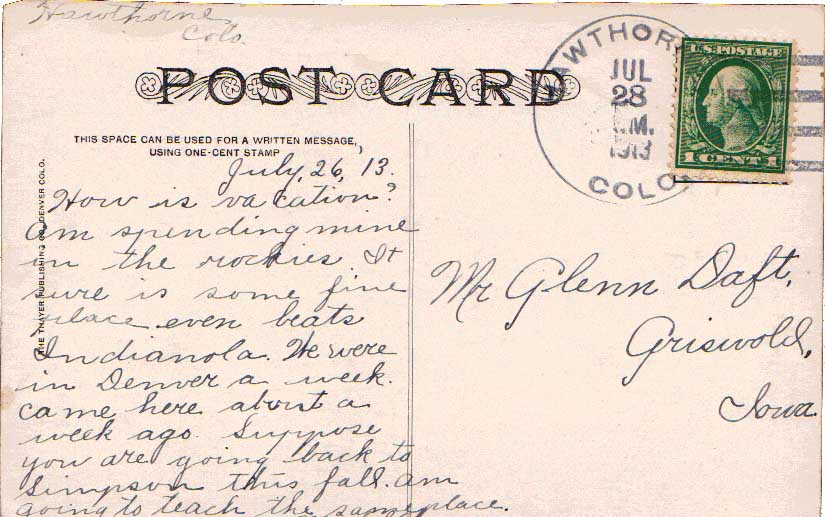 Hawthorne,
Colo.
POST CARD
THIS SPACE CAN BE USED FOR A WRITTEN MESSAGE,
USING ONE-CENT STAMP
July, 26, '13.
How is vacation?
am spending mine
in the rockies It
sure is some fine
place even beats
Indianola. We were
in Denver a week.
came here about a
week ago. Suppose
you are going back to
Simpson this fall. am
going to teach the same place.
THE THAYER PUBLISHING CO., DENVER COLO.
AWTHOR
JUL
28
.M.
1913
COLO.
U.S. POSTAGE
1 CENT 1
Mr Glenn Daft,
Griswold,
Iowa.